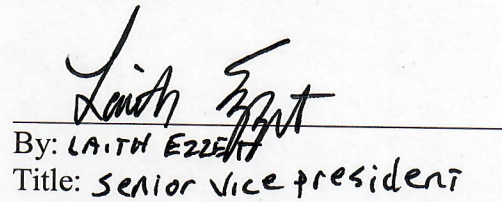 Laith Ezzett
By: LAITH EZZETT
Title: senior vice president